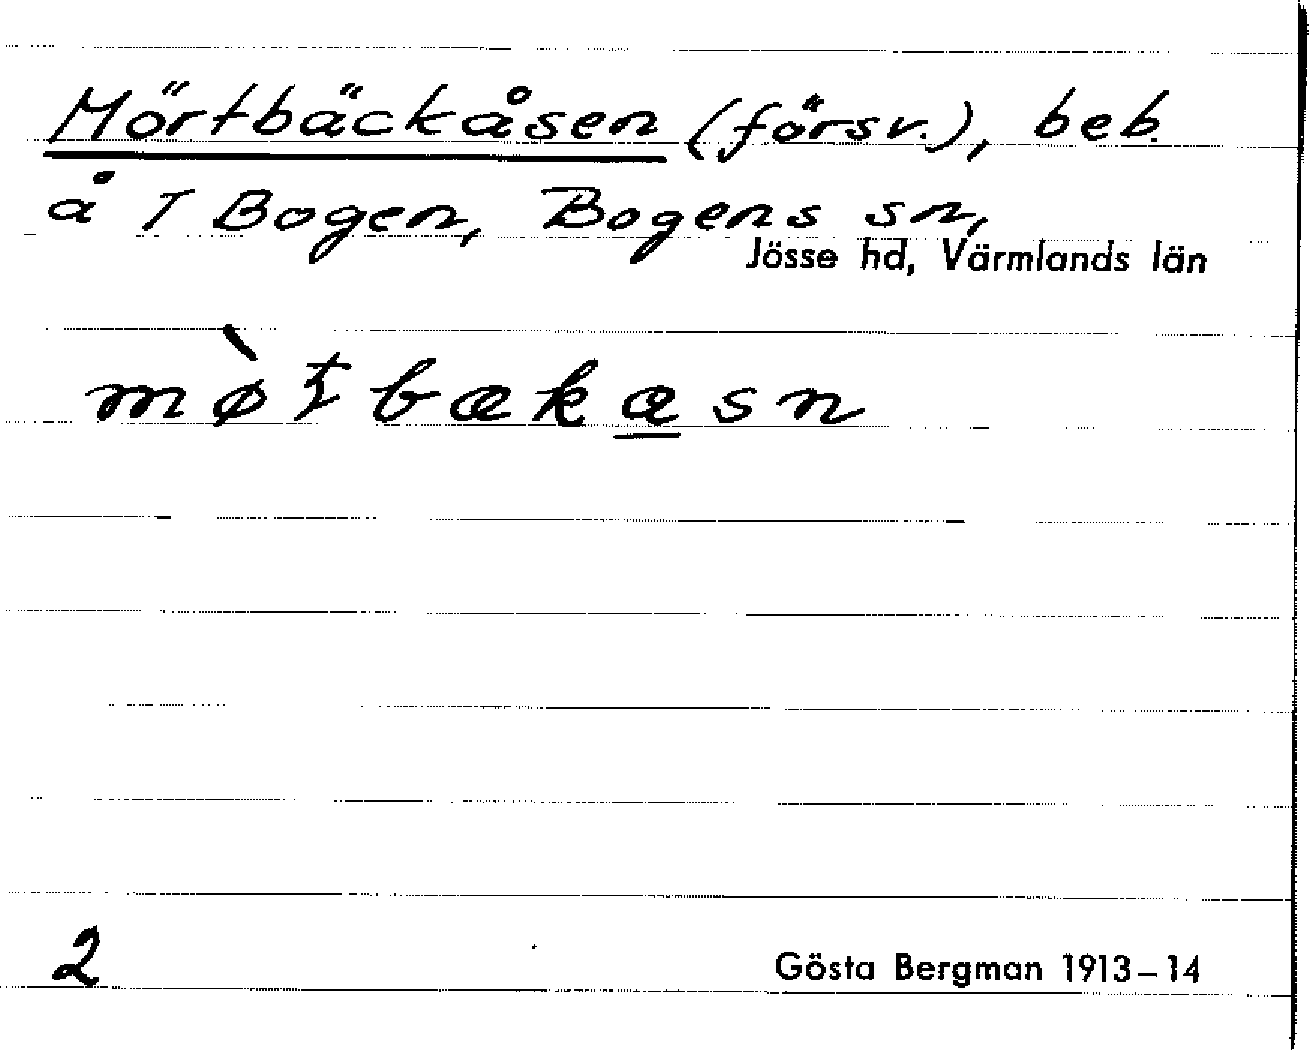 Mörtbäckåsen (försv.), beb.
å T Bogen, Bogens sn,
Jösse hd, Värmlands län
mø̀ʈbækæ̱sn
2
Gösta Bergman 1913–14